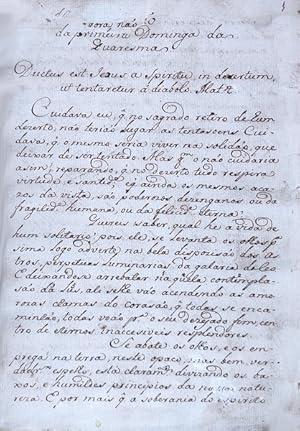 da primeira Dominga da
Quaresma
Ductus est Jesus a Spiritu, in desertum,
ut tentaretur á diabolo. Mat 4
Cuidava eu, q̃ no sagrado retiro de hum
dezerto, não terião lugar as tentaçoens. Cui
dava, q̃ o mesmo seria viver na solidão, que
deixar de ser tentado. Mas q.m o não cuidaria
asim, reparando, q̃ no dezerto tudo respira
virtude, e santid.e, eq̃ ainda os mesmos
da vista, são poderozos dezenganos ou da
fragilid.e humana, ou da felicid.e eterna!
Quereis saber, qual he a vida de
hum solitario? pois elle, se levanta os olhos
sima logo adverte, na bela dispozisão dos As
tros, perpetuas luminarias da galaria do Ceo
Edeixandose arrebatar naquela contempla-
são da Luz, ali selhe vão acendendo as amo-
rozas chamas do corasão q̃ todas se enca-
minhão, todas voão p.a o seu dezejado
centro de eternos, inaccessiveis resplendores.
Se abate os olhos, e os em
prega na terra, neste opaco, mas bem, ver-
dad.ro espelho, esta claram.te divizando os ba-
xos, e humildes principios da nossa natu-
reza. E por mais q̃ a soberania do espirito